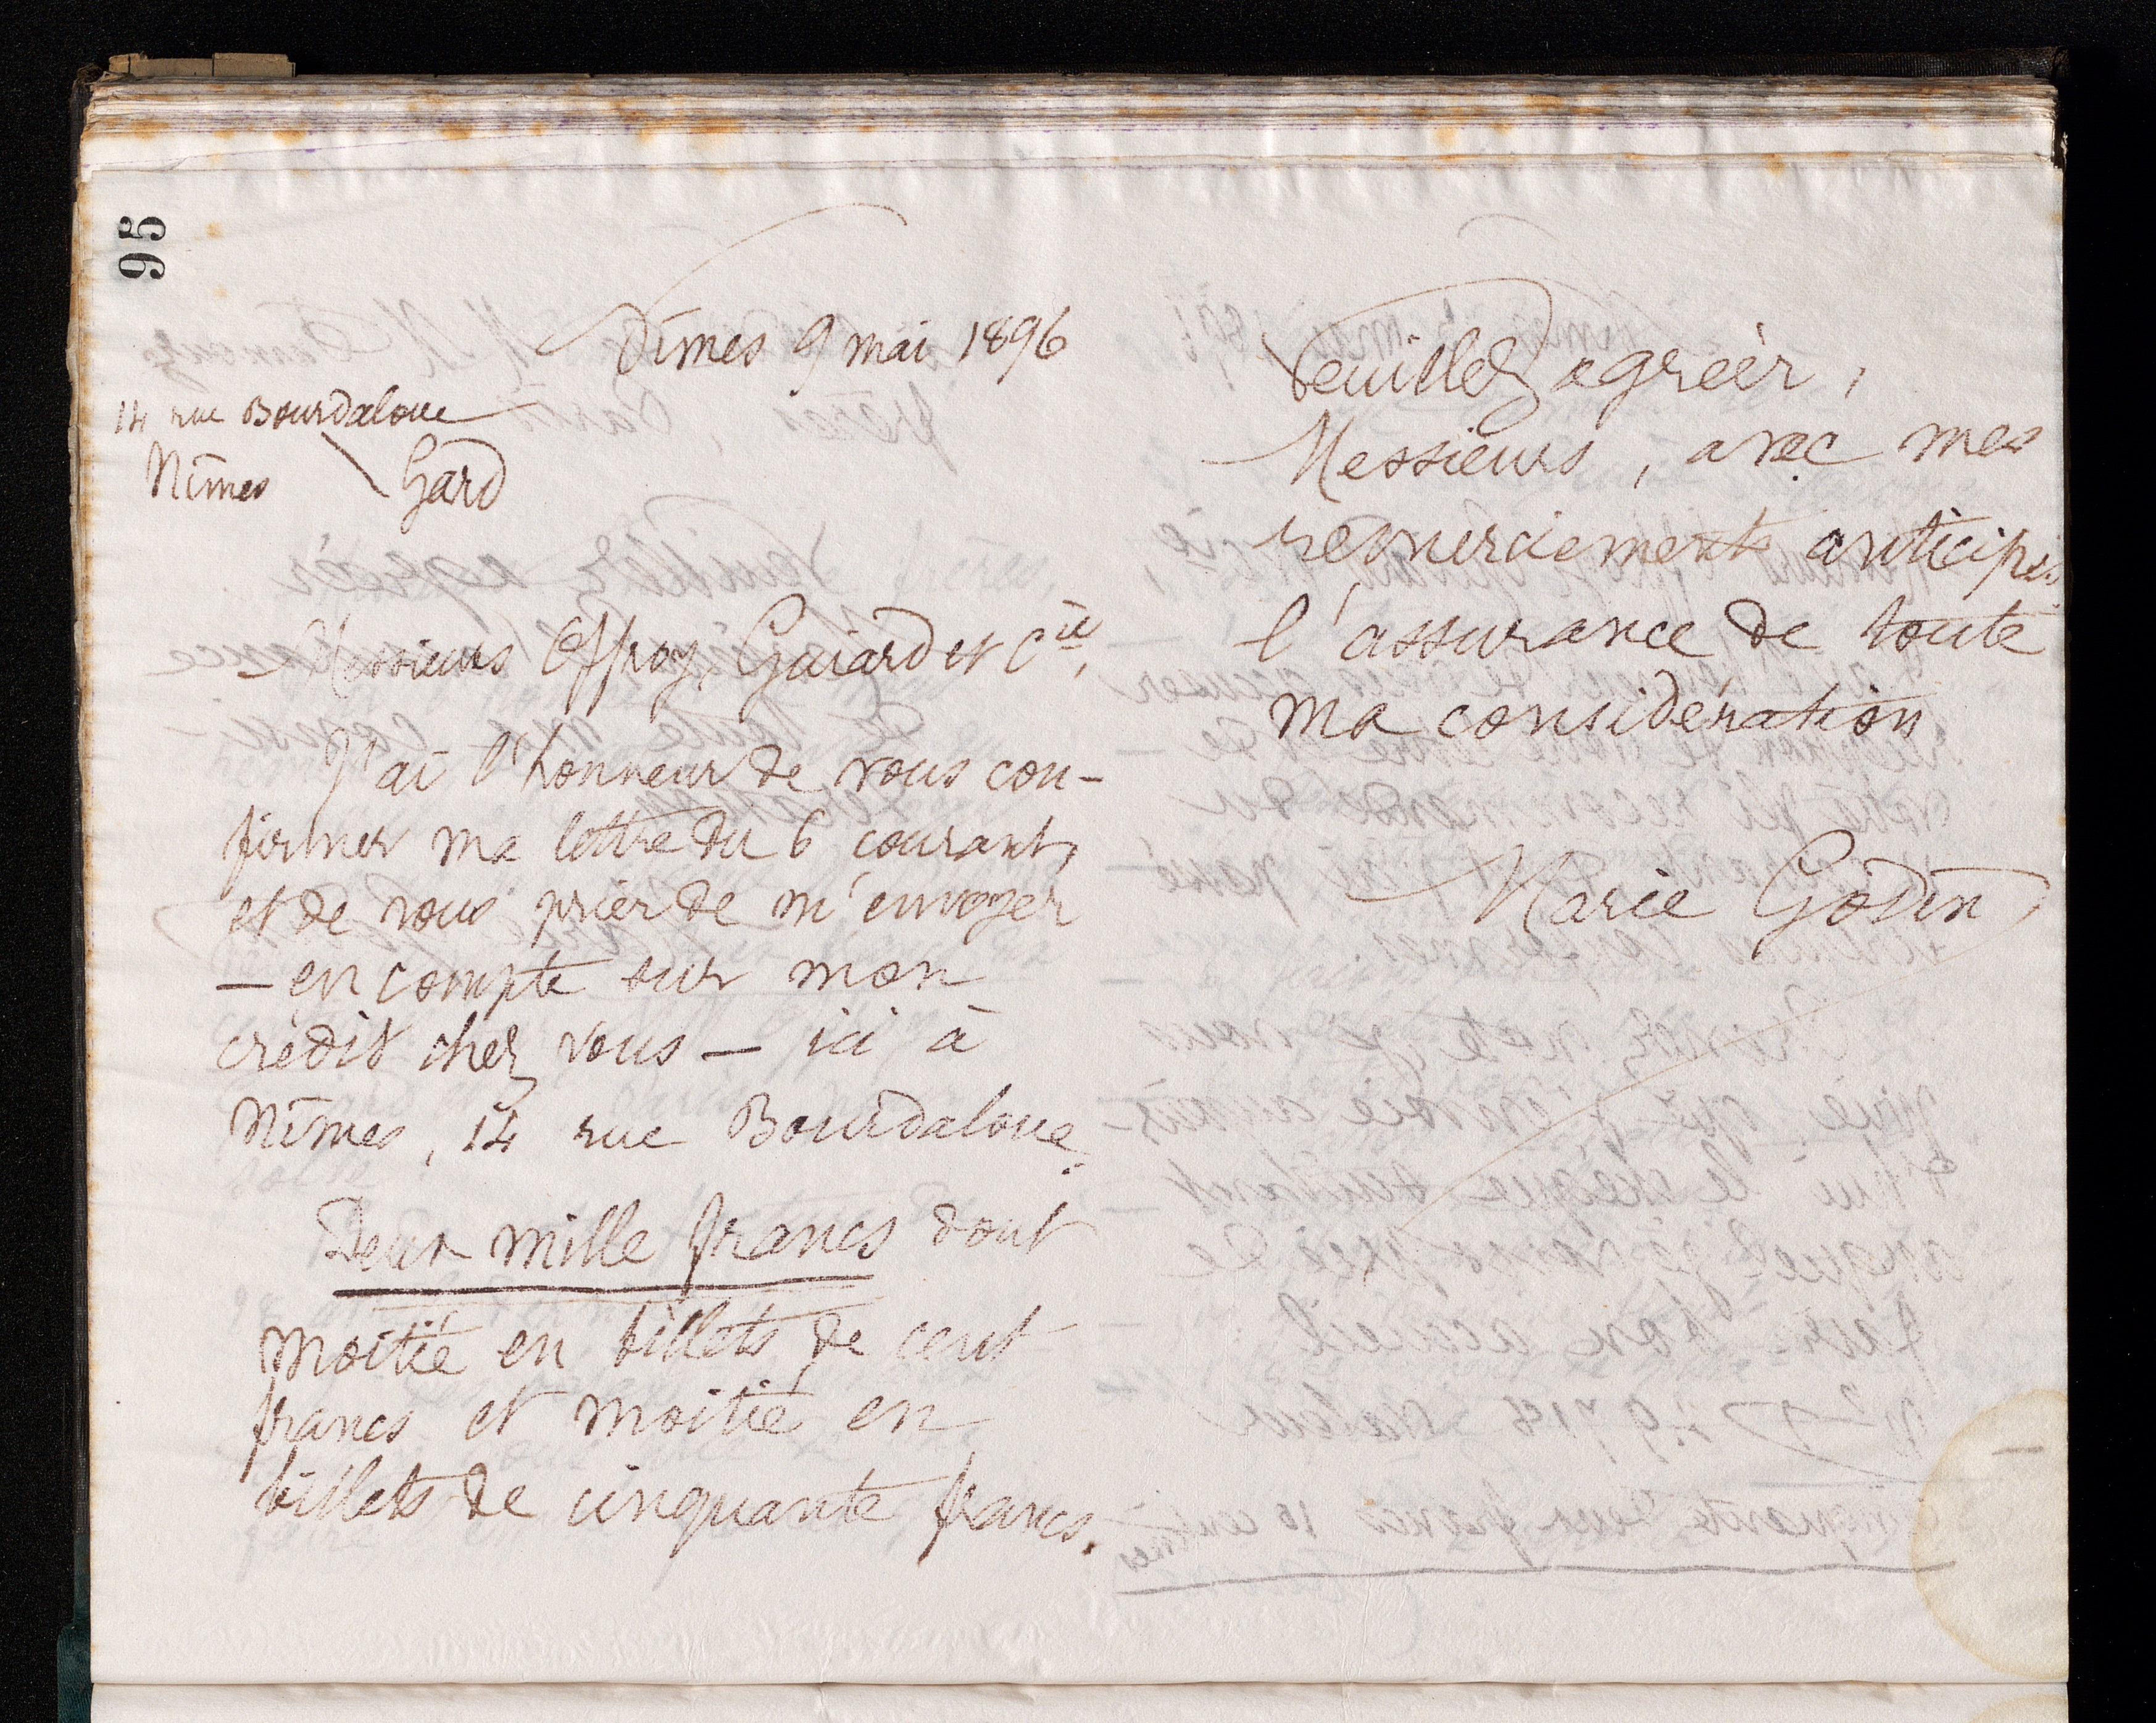 95
Nîmes 9 mai 1896
14 rue Bourdaloue
Nîmes Gard
Messieurs Offroy, Guiard et Cie,
J'ai l'honneur de vous con-
firmer ma lettre du 6 courant,
et de vous prier de m'envoyer
— en compte sur mon
crédit chez vous — ici à
Nîmes, 14 rue Bourdaloue.
Deux mille francs dont
moitié en billets de cent
francs et moitié en
billets de cinquante francs.
Veuillez agréer,
Messieurs, avec mes
remerciements anticipés
l'assurance de toute
ma considération
Marie Godin